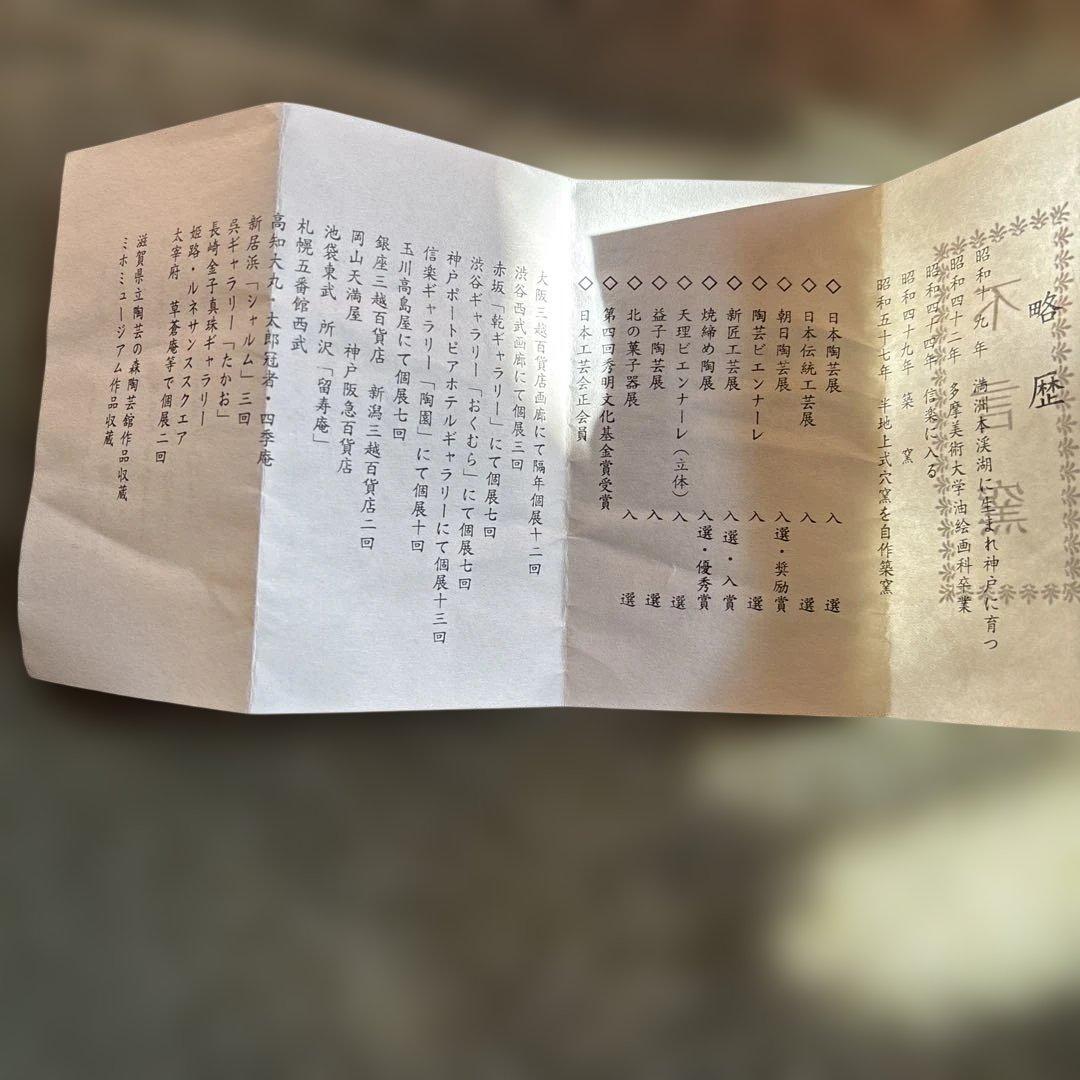 略歴
昭和十九年 満洲本渓湖に生まれ神戸に育つ
昭和四十二年 多摩美術大学油絵画科卒業
昭和四十四年 信楽に入る
昭和四十九年 築 窯
昭和五十七年 半地上式穴窯を自作築窯
◇ 日本陶芸展 入 選
◇ 日本伝統工芸展 入 選
◇ 朝日陶芸展 入選・奨励賞
◇ 陶芸ビエンナーレ 入 選
◇ 新匠工芸展 入選・入賞
◇ 焼締め陶展 入選・優秀賞
◇ 天理ビエンナーレ(立体) 入 選
◇ 益子陶芸展 入 選
◇ 北の菓子器展 入 選
◇ 第四回秀明文化基金賞受賞
◇ 日本工芸会正会員
大阪三越百貨店画廊にて隔年個展十二回
渋谷西武画廊にて個展三回
赤坂「乾ギャラリー」にて個展七回
渋谷ギャラリー「おくむら」にて個展七回
神戸ポートピアホテルギャラリーにて個展十三回
信楽ギャラリー「陶園」にて個展十回
玉川高島屋にて個展七回
銀座三越百貨店 新潟三越百貨店二回
岡山天満屋 神戸阪急百貨店
池袋東武 所沢「留寿庵」
札幌五番館西武
高知大丸・太郎冠者・四季庵
新居浜「シャルム」三回
呉ギャラリー「たかお」
長崎金子真珠ギャラリー
姫路・ルネサンススクエア
太宰府 草蒼庵等で個展二回
滋賀県立陶芸の森陶芸館作品収蔵
ミホミュージアム作品収蔵
不言窯